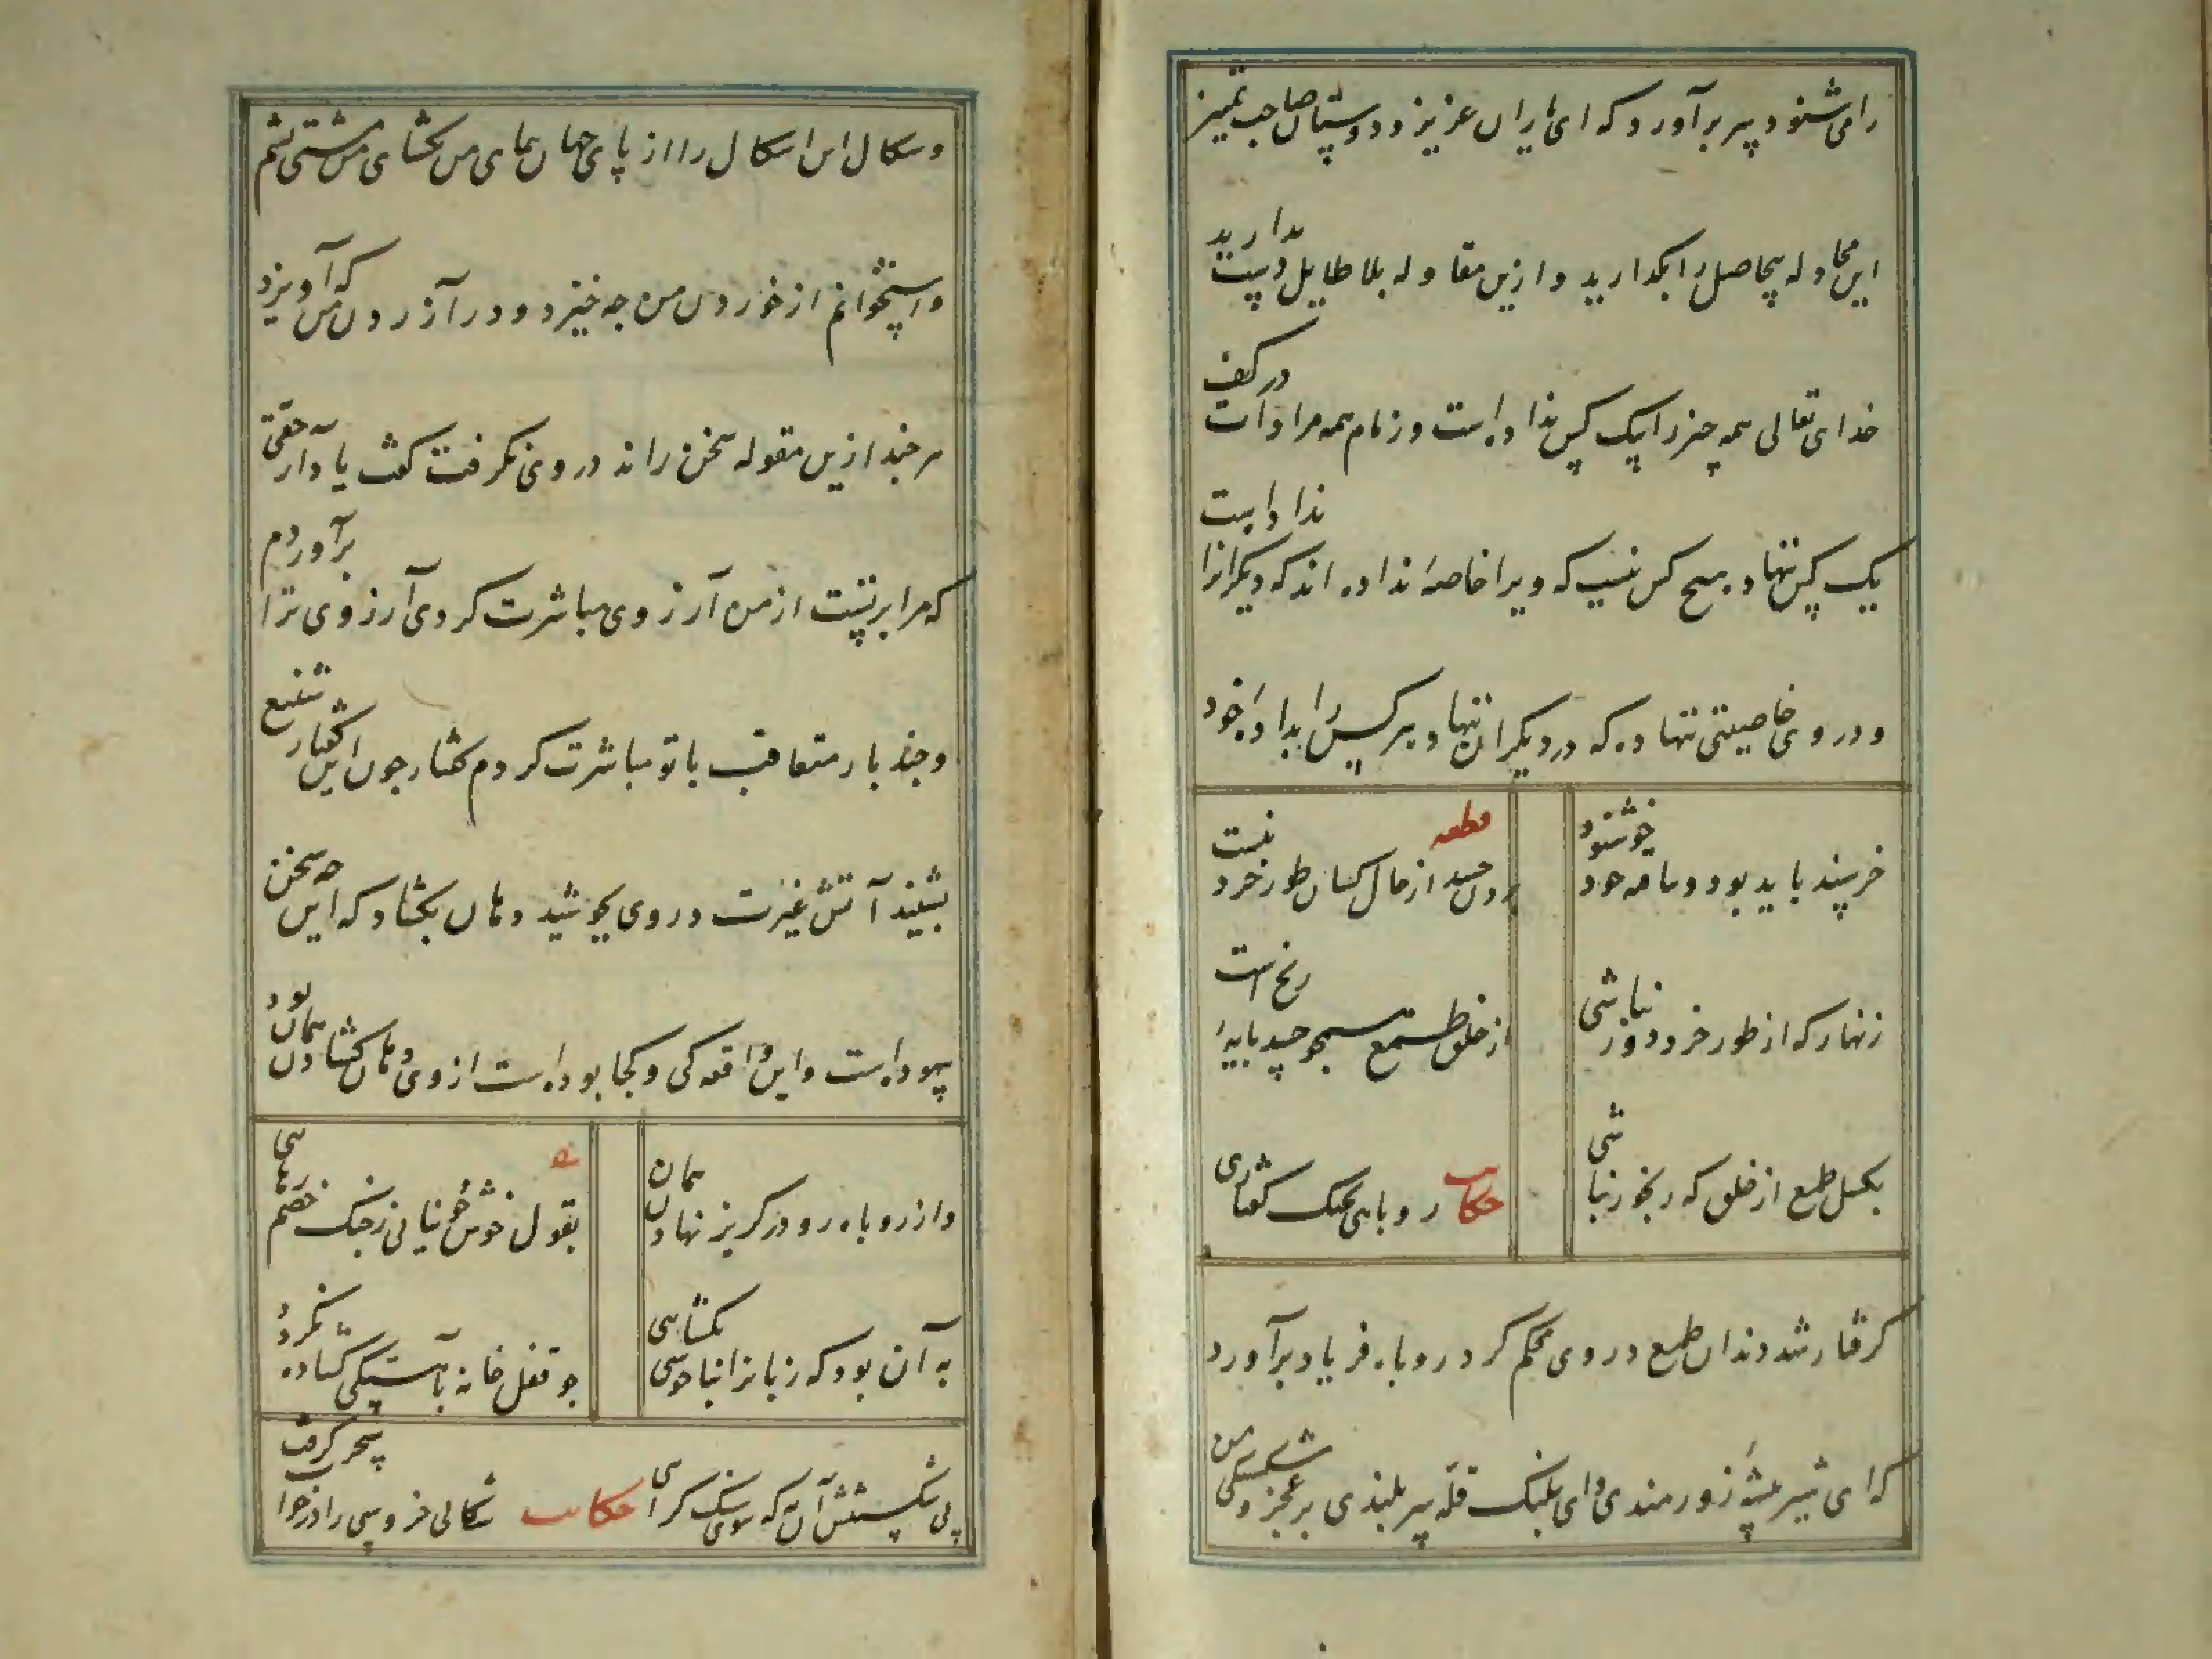 را می شنود پیر برآورد که ای یاران عزیز و دوستان صاحب تمیز
این مجادله بیحاصل را بگذارید و ازین مقاوله بلا طایل دست بدارید
خدای تعالی همه چیز را بیک کس نداده است و زمام همه مرادات در کف
یک کس ننهاده هیچ کس نیست که ویرا خاصهٔ نداده اند که دیگرانرا نداده است
و در وی خاصیتی ننهاده که در دیگران ننهاد هر کس را بدادهٔ خود
خرسند باید بود و بیافتهٔ خود خوشنود قطعه بردن حسد از حال کسان طور خرد نیست
زنهار که از طور خرد دور نباشی از خلق طمع همچو حسد مایهٔ رنج است
بکسل طمع از خلق که رنجور نباشی حکایت روباهی بچنک کفتاری
کرفتار شد دندان طمع در وی محکم کرد روباه فریاد برآورد
که ای شیر بیشهٔ زورمندی و ای پلنک قلهٔ سربلندی بر عجز و شکستکی من
و شکال این اشکال را از پای جهان پیمای من بکشای من مشتی پشم
و استخوانم از خوردن من چه خیزد و در آزردن من که آویزد
هر چند ازین مقوله سخن راند در وی نکرفت کفت یاد آر حقی
که مرا بر تست از من آرزوی مباشرت کردی آرزوی ترا برآوردم
و چند بار متعاقب با تو مباشرت کردم کفتار چون این کفتار شنیع
بشنید آتش غیرت در وی بجوشید دهان بکشاد که این چه سخن
بیهوده است و این واقعه کی و کجا بوده است از وی دهان کشادن همان بود
و از روباه رو در کریز نهادن همان بقول خوش چو نیابی ز چنک خصم رهایی
به آن بود که زبانرا بناخوشی بکشایی چو قفل خانه بآهستکی کشاده نکردد
پی شکستنش آن به که سوی سنک کرایی حکایت شکالی خروسی را در خواب سحر کرفت